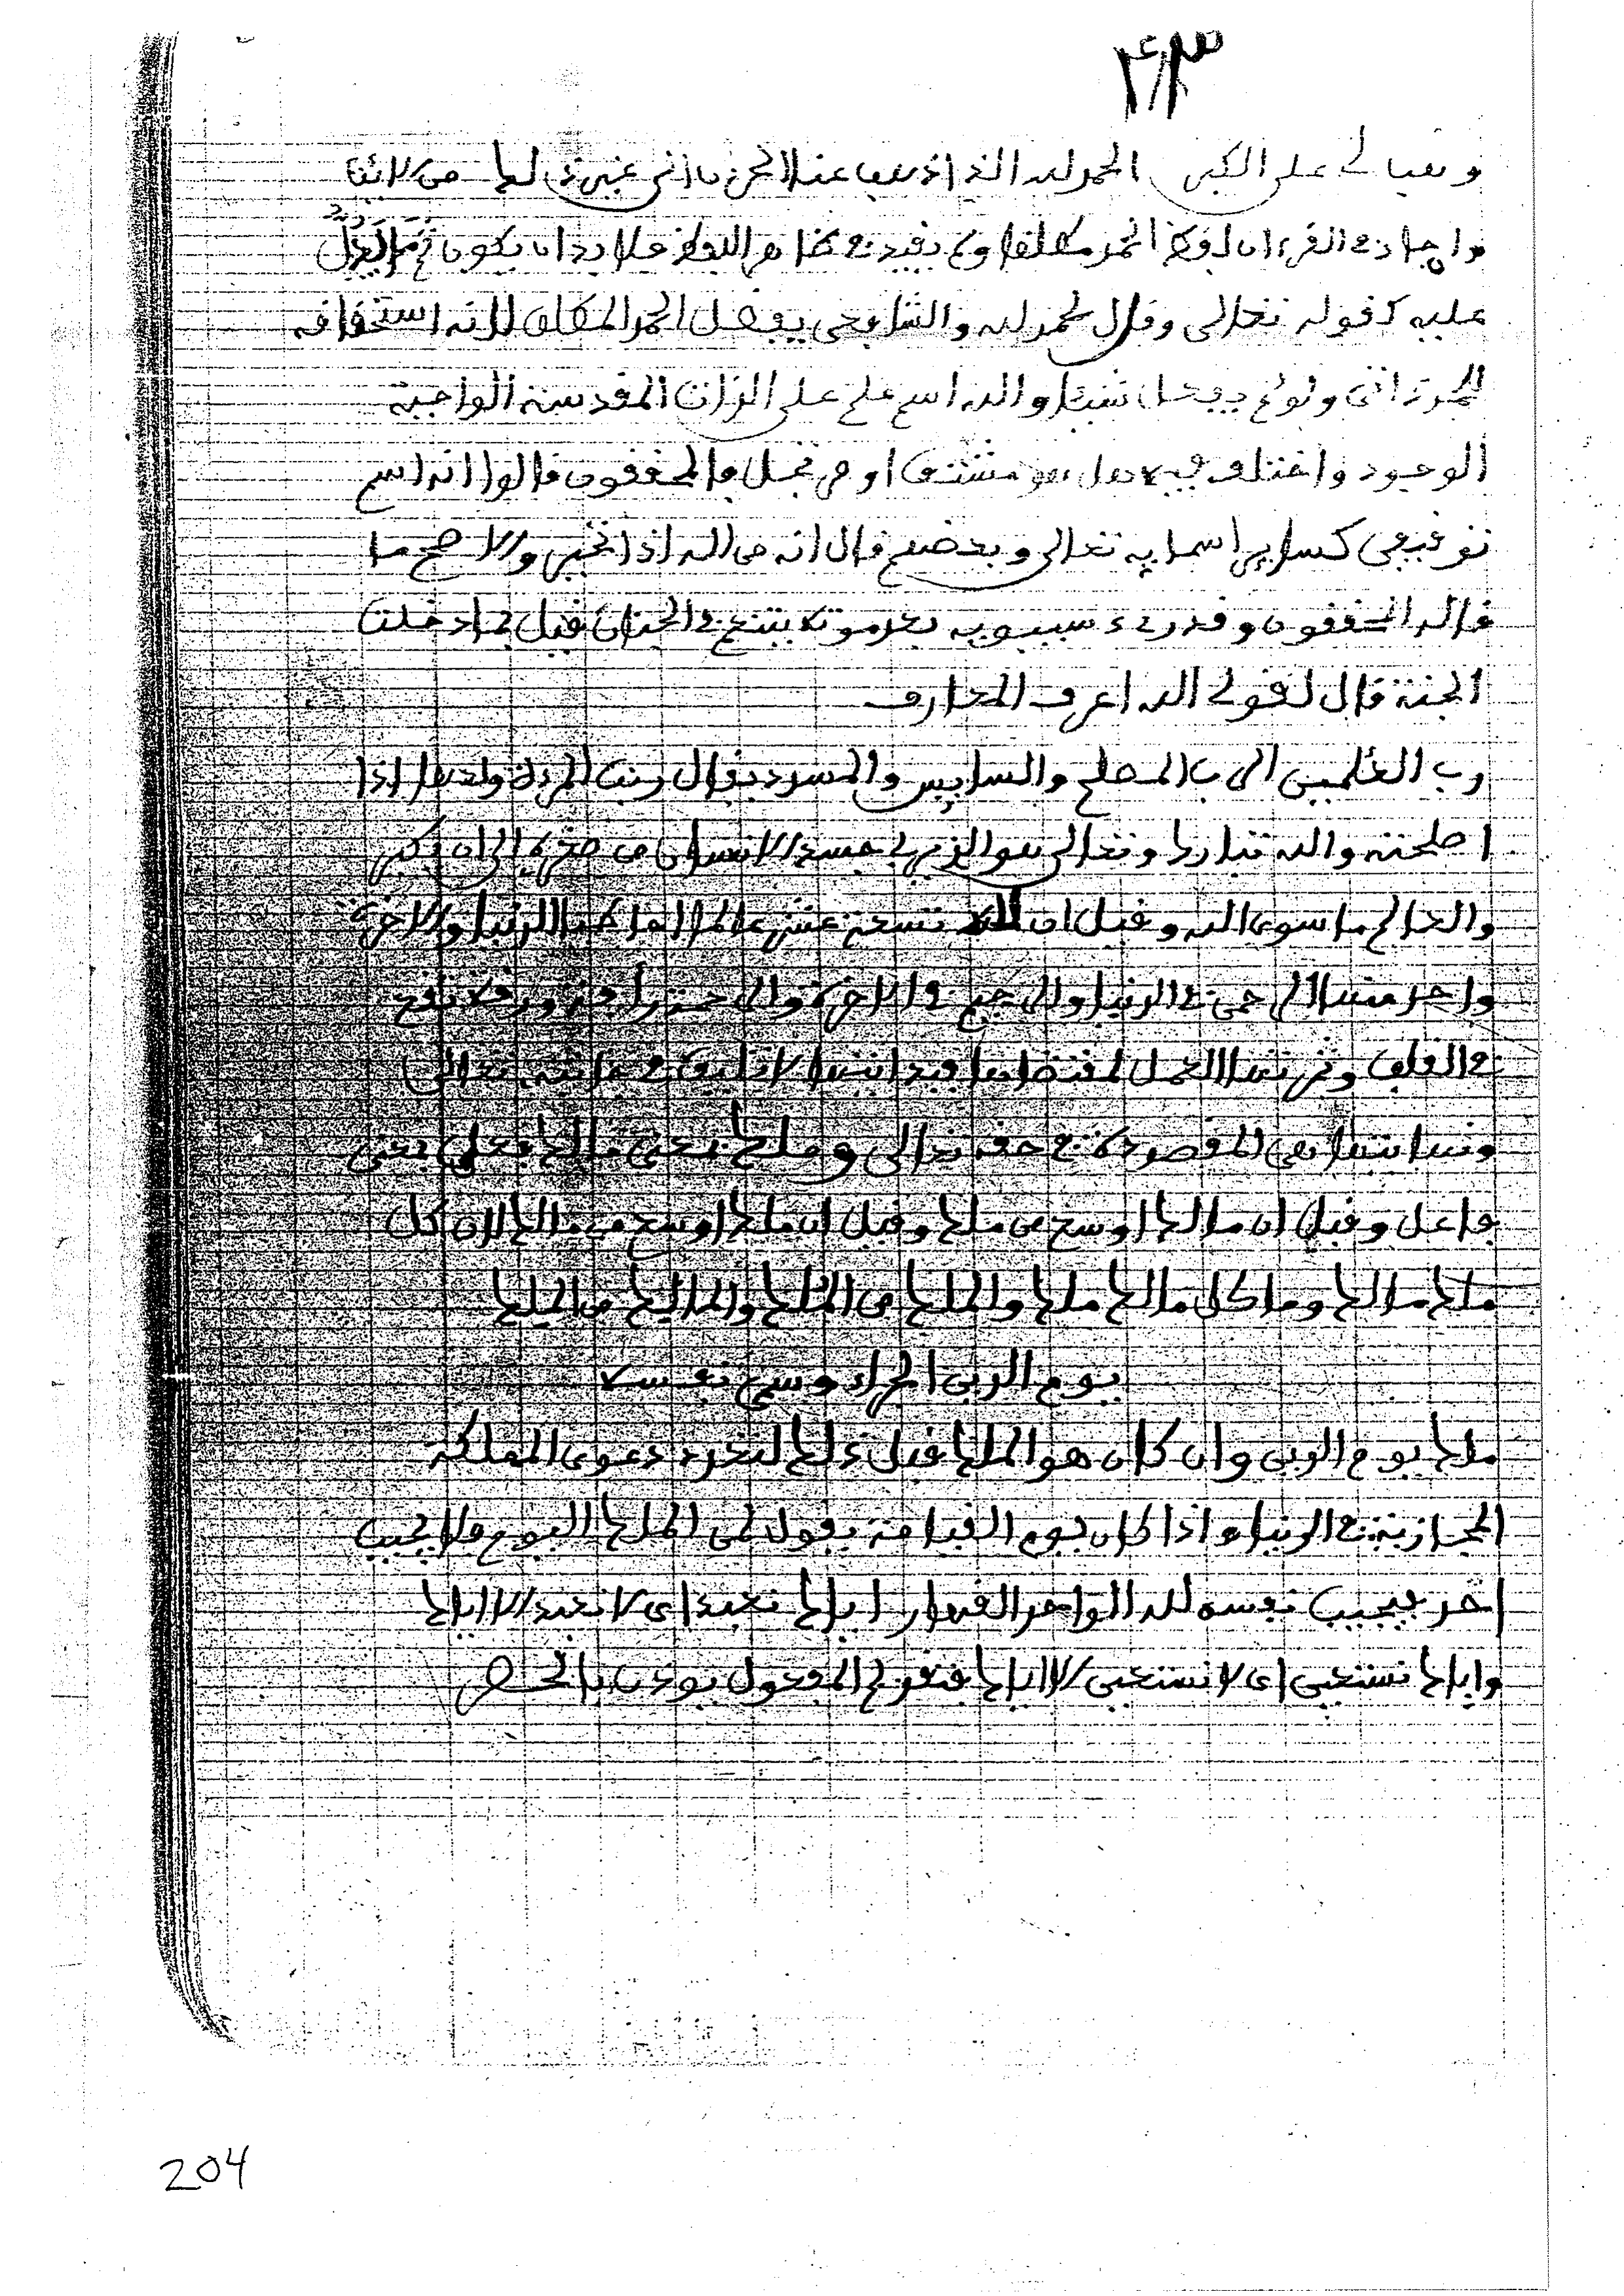 ٢٤٣
وهب لي على الكبر الحمد لله الذي اذهب عنا الحزن الى غير ذلك من الايات
وان جاء في القرءان لفظ الحمد مطلقا ولم يقيد في ظاهر اللفظ فلا بد ان يكون ثم ما يدل
عليه كقوله تعالى وقل الحمد لله والشافعي يفضل الحمد المطلق لانه استحقاقه
الحمد ذاتي ولو لم يفعل شيئا والله اسم علم على الذات المقدسة الواجبة
الوجود واختلف فيه هل هو مشتق او مرتجل والمحققون قالوا انه اسم
توقيفي كساير اسمايه تعالى وبعضهم قال انه من اله اذا تحير والاصح ما
قاله المحققون وقد رءي سيبويه بعد موته يتنعم في الجنان فقيل بم ادخلت
الجنة قال لقولي الله اعرف المعارف
رب العلمين الرب المصلح والسايس والمسدد يقال ربيت المرءة ولدها اذا
اصلحته والله تبارك وتعالى هو الذي ربي جسد الانسان من صغره الى ان كبر
والعالم ما سوى الله وقيل ان لله تسعة عشر عالما الدنيا والاخرة
واحد منها الرحمن في الدنيا والرحيم في الاخرة والرحمة رأفة ورقة تقع
في القلب وثمرتها العمل لمقتضاها فبدايتها لا تليق في جانبه تعالى
ونهايتها هي المقصودة في حقه تعالى وملك بمعنى مالك بمعنى
فاعل وقيل ان مالك اوسع من ملك وقيل ان ملك اوسع من مالك لان كل
ملك مالك وما كل مالك ملك والملك من المُلك والمالك من المِلك
يوم الدين الجزاء وسمى نفسه
ملك يوم الدين وان كان هو الملك قبل ذلك لتجرد دعوى المملكة
المجازية في الدنيا واذا كان يوم القيامة يقول لمن الملك اليوم فلا يجيب
احد فيجيب نفسه لله الواحد القهار اياك نعبد اي لا نعبد الا اياك
واياك نستعين اي لا نستعين الا اياك فتقديم المفعول يوذن بالحصر
204